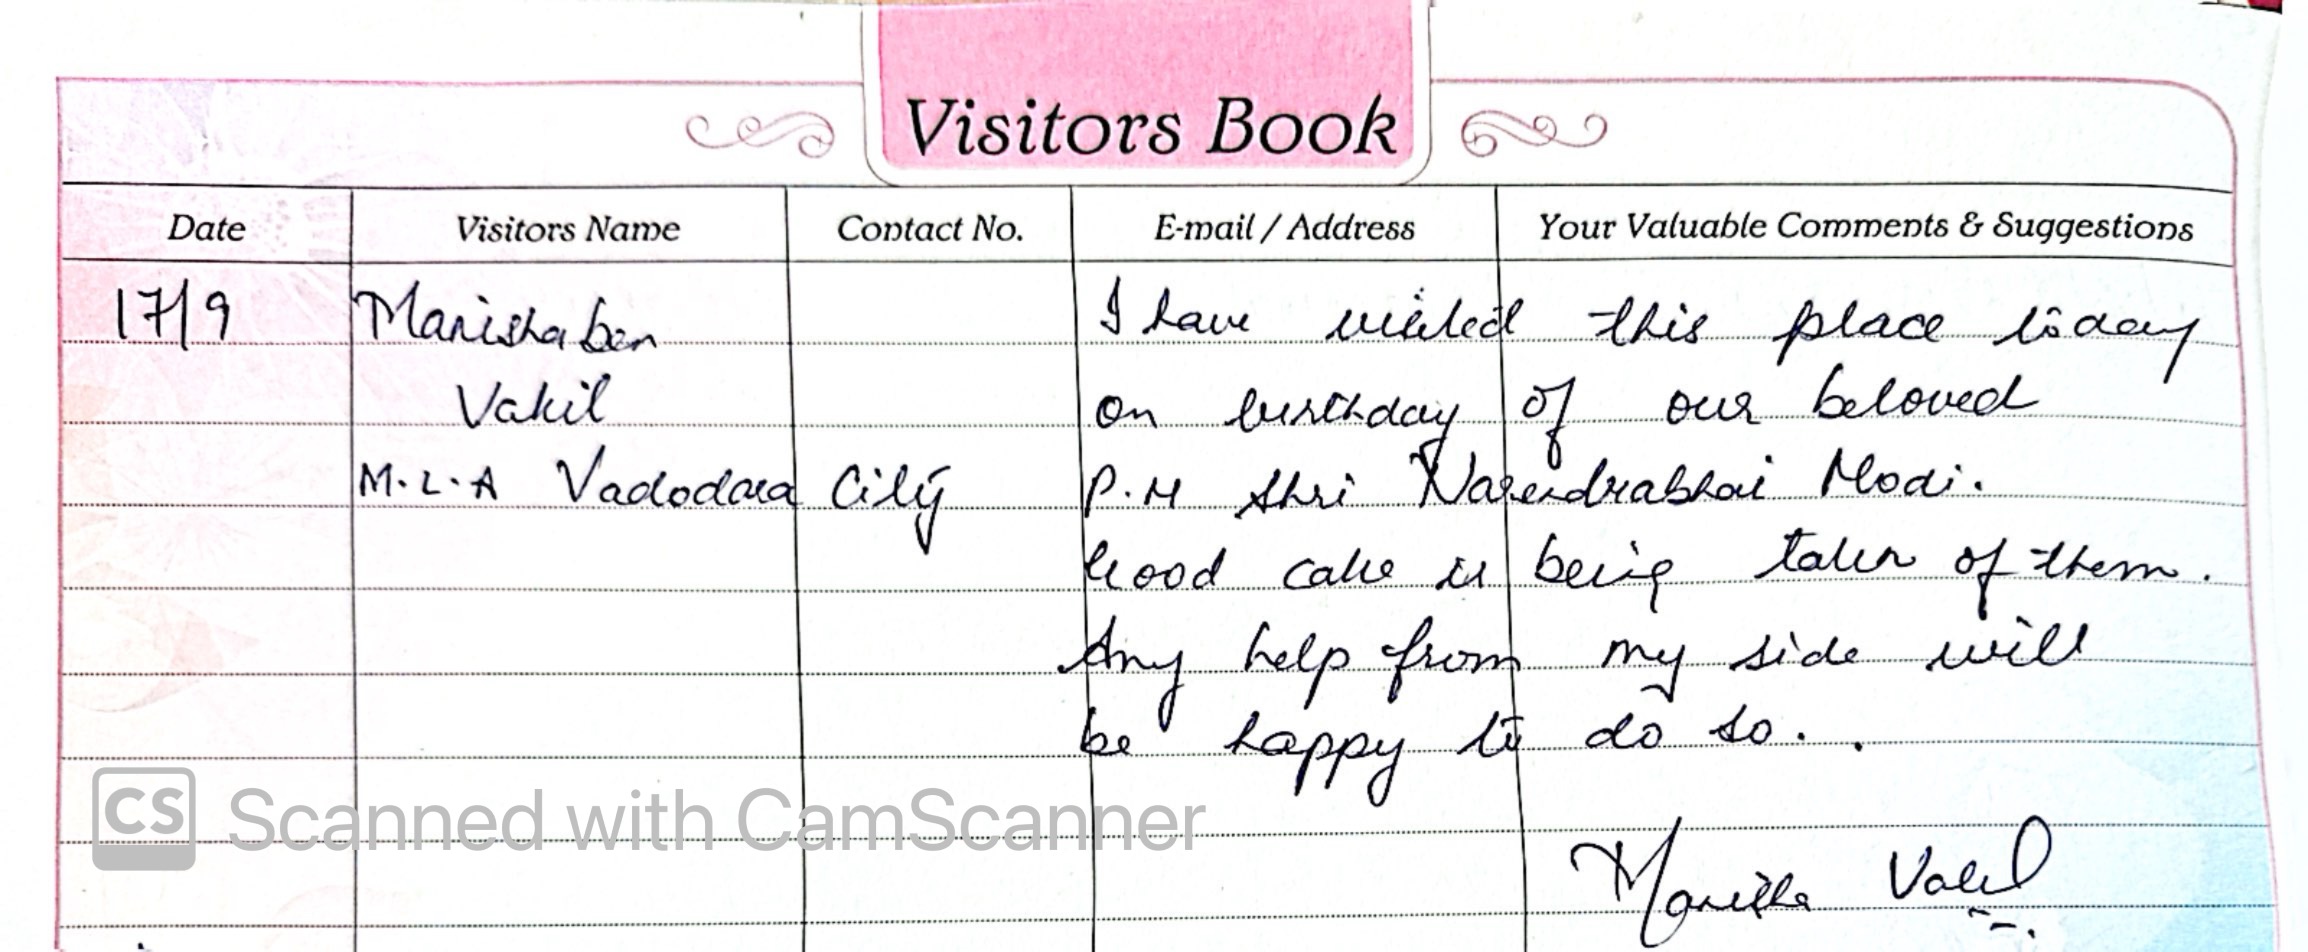 Visitors Book
Date Visitors Name Contact No. E-mail / Address Your Valuable Comments & Suggestions
17/9 Manishaben I have visited this place today
Vakil on birthday of our beloved
M.L.A Vadodara City P.M Shri Narendrabhai Modi.
Good cake is being taken of them.
Any help from my side will
be happy to do so..
CS Scanned with CamScanner
Manisha Vakil